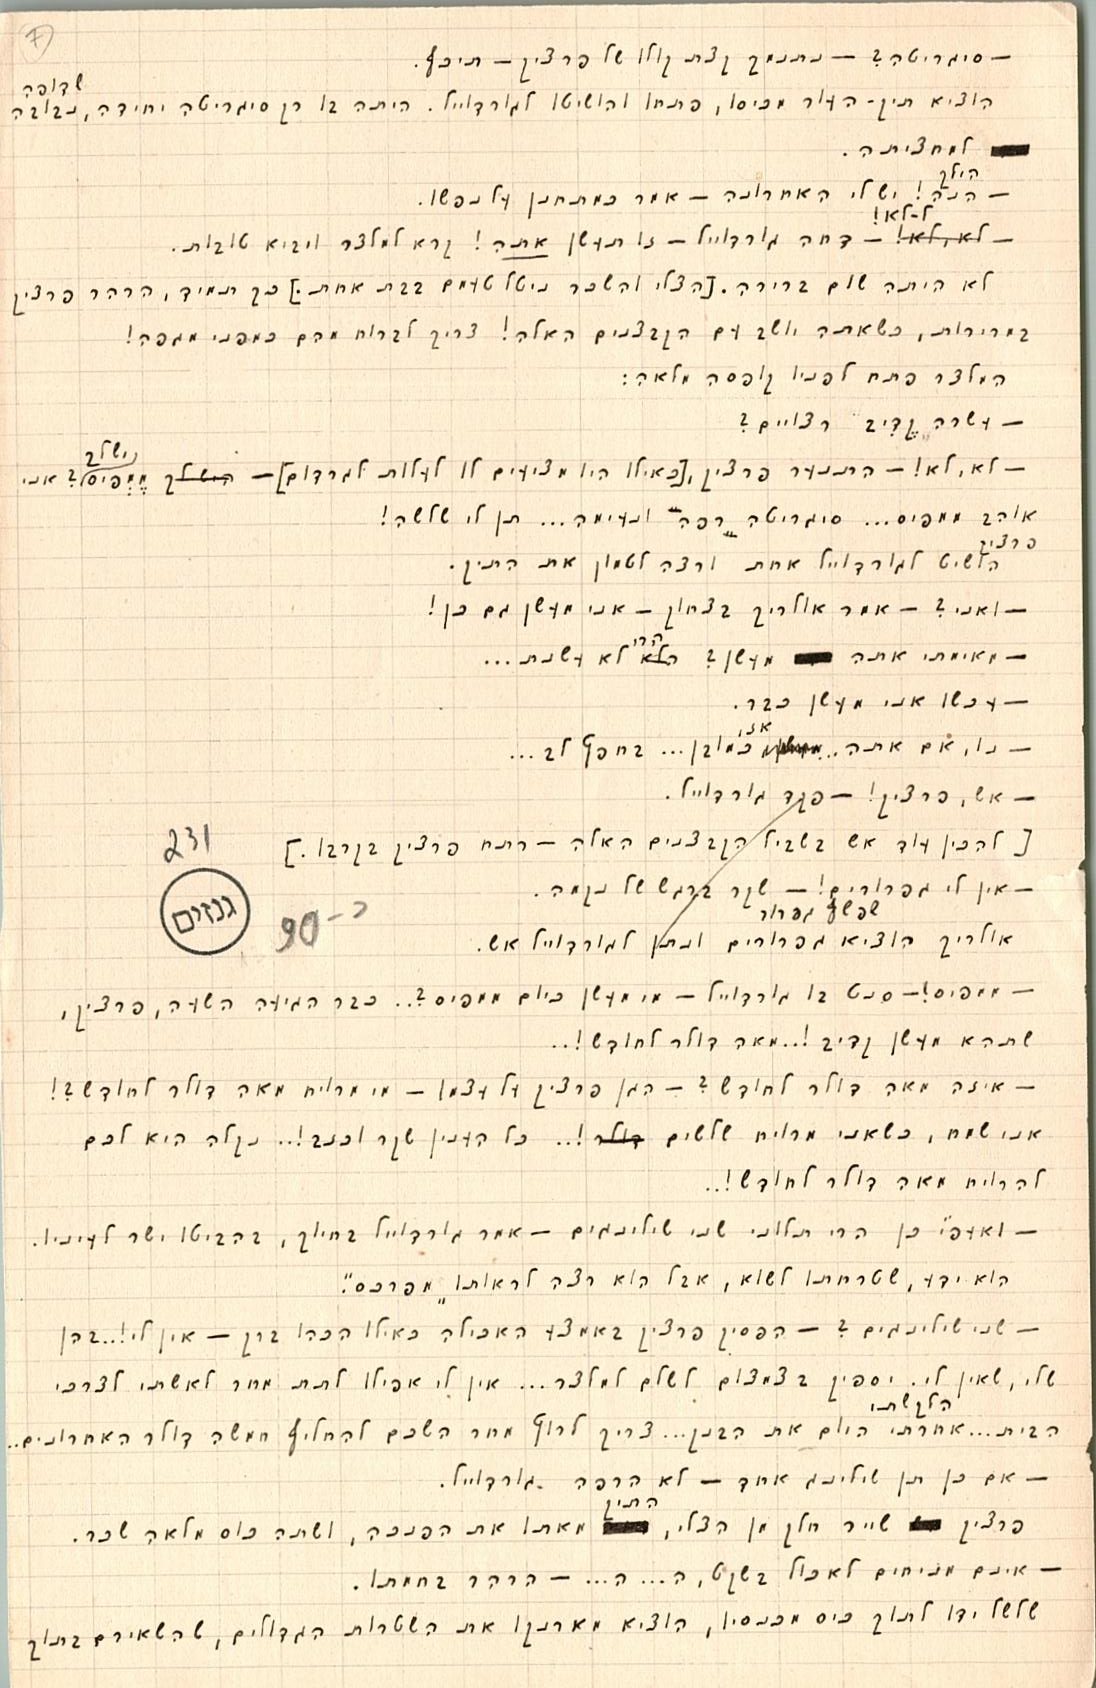 7
— סיגריטה? — נתנמך קצת קולו של פרצין — תיכף.
שדופה
הוציא תיק-העור מכיסו, פתחו והושיטו לגורדוייל. היתה בו רק סיגריטה יחידה, נבובה
למחציתה.
הילך
— הנה! יש לי האחרונה — אמר כמתחנן על נפשו.
ל-לא!
— לא, לא! — דחה גורדוייל — זו תעשן אתה! קרא למלצר ויביא טובות.
לא היתה שום ברירה. [הצלי והשכר ניטל טעמם בבת אחת.] כך תמיד, הרהר פרצין
במרירות, כשאתה יושב עם הקבצנים האלה! צריך לברוח מהם כמפני מגפה!
המלצר פתח לפניו קופסה מלאה:
— עשרה „קֶדיב" רצויים?
נישלך
— לא, לא! — התנער פרצין, [כאילו היו מציעים לו לעלות לגרדום] — ממפיס? אני
אוהב ממפיס... סיגריטה „רפה" ונעימה... תן לי שלשה!
פרצין
הושיט לגורדוייל אחת ורצה לטמון את התיק.
— ואני? — אמר אולריך בצחוק — אני מעשן גם כן!
הרי
— מאימתי אתה מעשן? הלא לא עשנת...
— עכשו אני מעשן כבר.
אז,
— נו, אם אתה... כמובן... בחפץ לב...
— אש, פרצין! — פקד גורדוייל.
[ להכין עוד אש בשביל הקבצנים האלה — רתח פרצין בקרבו.]
231
— אין לי גפרורים! — שקר ברגש של נקמה.
גנזים
שפשף גפרור
90-כ
אולריך הוציא גפרורים ונתן לגורדוייל אש.
— ממפיס! — סנט בו גורדוייל — מי מעשן כיום ממפיס?.. כבר הגיעה השעה, פרצין,
שתהא מעשן קדיב!.. מאה דולר לחודש!..
— איזה מאה דולר לחודש? — הגן פרצין על עצמו — מי מרויח מאה דולר לחודש?!
אני שמח, כשאני מרויח שלשים דולר!.. כל הענין שקר וכזב!.. נקלה היא לכם
להרויח מאה דולר לחודש!..
— ואעפ"י כן הרי תלווני שני שילינגים — אמר גורדוייל בחיוך, בהביטו ישר לעיניו.
הוא ידע, שטרחתו לשוא, אבל הוא רצה לראותו „מפרכס".
— שני שילינגים? — הפסיק פרצין באמצע האכילה כאילו הכהו ברק — אין לי!.. בהן
שלי, שאין לי. יספיק בצמצום לשלם למלצר... אין לי אפילו לתת מחר לאשתי לצרכי
הלקשתי
הבית... אחרתי היום את הבנק... צריך לרוץ מחר השכם להחליף חמשה דולר האחרונים..
— אם כן תן שילינג אחד — לא הרפה גורדוייל.
התיק
פרצין שייר חלק מן הצלי, מאתו את הפנכה, ושתה כוס מלאה שכר.
— אינם מניחים לאכול בשקט, ה... ה... — הרהר בחמתו.
שלשל ידו לתוך כיס מכנסיו, הוציא מארנקו את השטרות הגדולים, שהשאירם בתוך